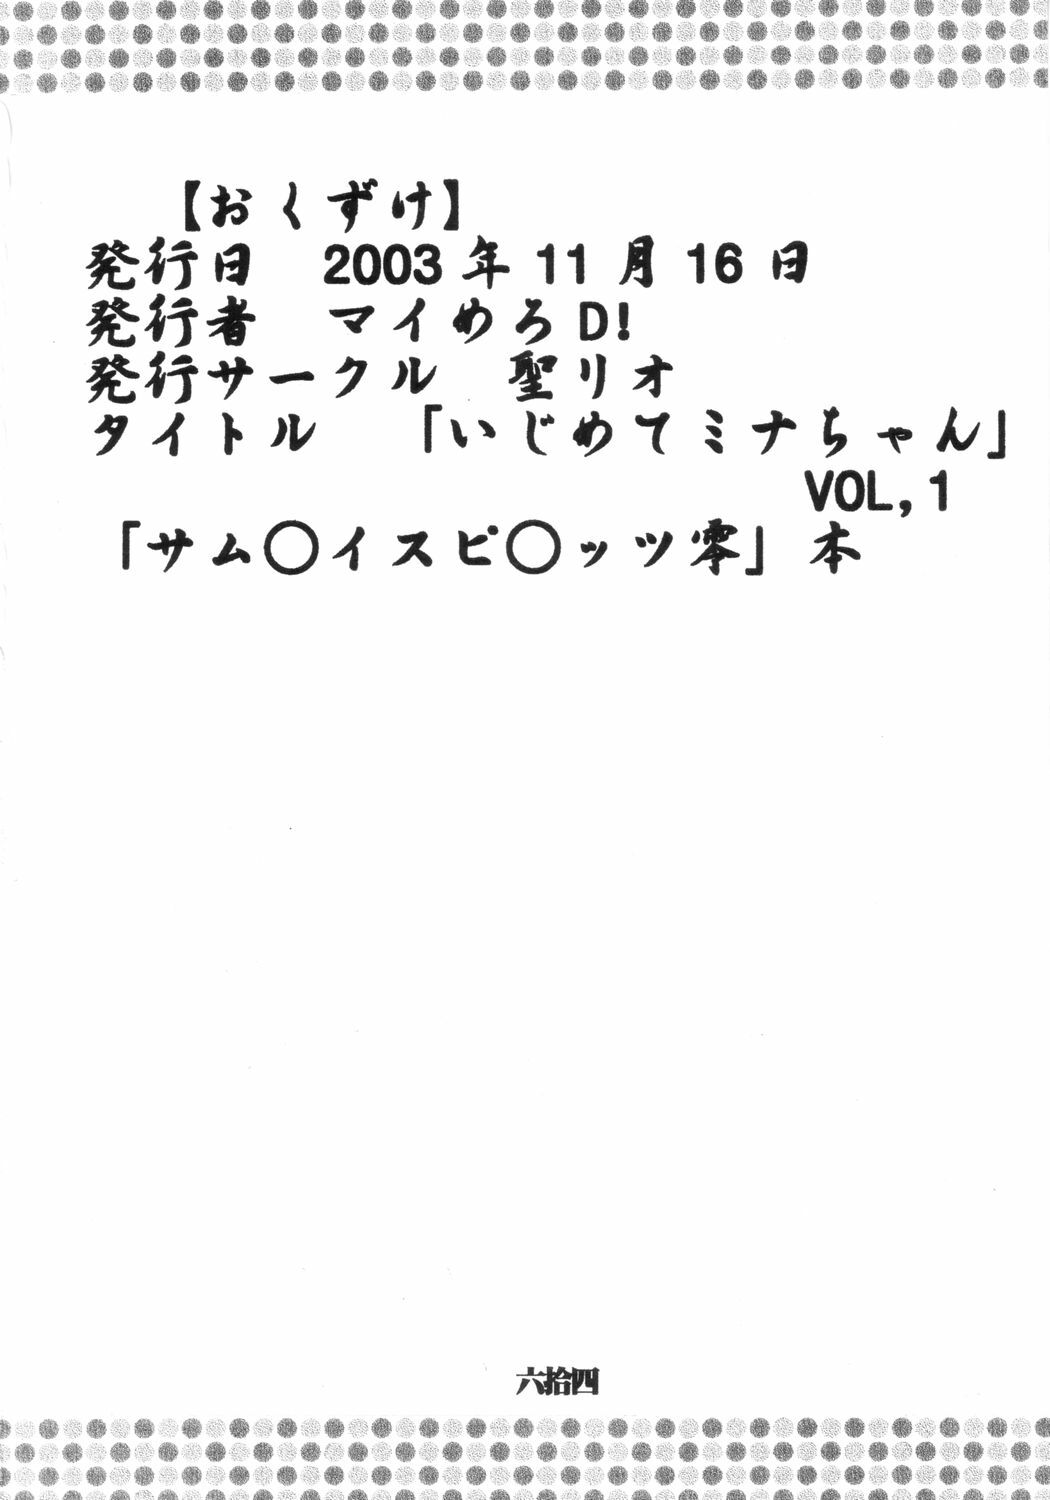 【おくずけ】
発行日 2003年11月16日
発行者 マイめろD!
発行サークル 聖リオ
タイトル 「いじめてミナちゃん」
VOL,1
「サム◯イスピ◯ッツ零」本
六拾四